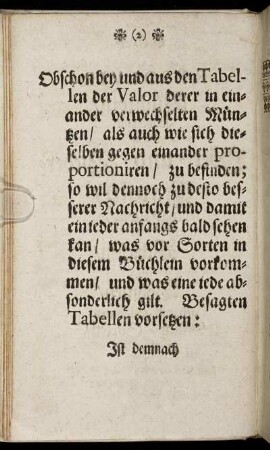 (2)
Obschon bey und aus den Tabel-
len der Valor derer in ein-
ander verwechselten Mün-
tzen/ als auch wie sich die-
selben gegen einander pro-
portioniren/ zu befinden;
so wil dennoch zu desto bes-
serer Nachricht/ und damit
ein ieder anfangs bald sehen
kan/ was vor Sorten in
diesem Büchlein vorkom-
men/ und was eine iede ab-
sonderlich gilt. Besagten
Tabellen vorsetzen:
Ist demnach